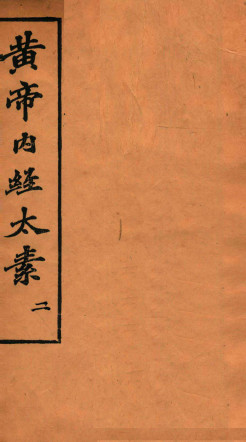 黄帝内经太素
二